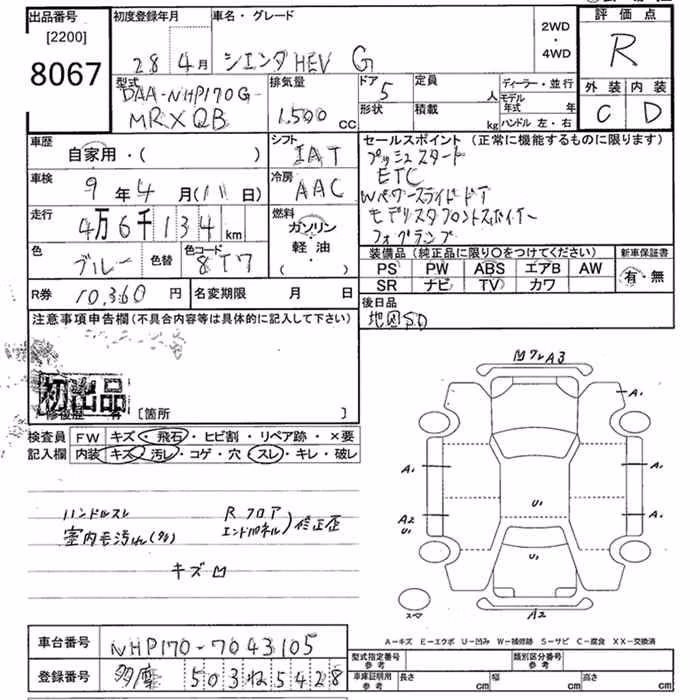 出品番号
[2200]
8067
初度登録年月
28年4月
車名・グレード
シエンタHEV G
2WD
・
4WD
評価点
R
外装 内装
C D
型式
DAA-NHP170G-
MRXQB
排気量
1,500 cc
ドア 5
形状
定員 人
積載 kg
ディーラー・並行
モデル年式 年
ハンドル 左・右
車歴
自家用・( )
シフト
IAT
車検
9年4月(11日)
冷房
AAC
走行
4万6千134km
燃料
ガソリン
・
軽油
( )
色
ブルー
色替
色コード
8T7
R券 10,360円
名変期限 月 日
セールスポイント (正常に機能するものに限ります)
プッシュスタート
ETC
Wパワースライドドア
モデリスタフロントスポイラー
フォグランプ
装備品 (純正品に限り○をつけてください)
PS PW ABS エアB AW
SR ナビ TV カワ
新車保証書
有・無
後日品
地図SD
注意事項申告欄(不具合内容等は具体的に記入して下さい)
初出品
修復歴 有 [箇所 ]
検査員 FW キズ・飛石・ヒビ割・リペア跡・×要
記入欄 内装 キズ・汚レ・コゲ・穴・スレ・キレ・破レ
ハンドルスレ
室内毛汚れ(%)
Rフロア
エンドパネル)修正歪
キズ凹
凹ワレA3
A1
A1
A1
A2
U1
A1
U1
U1
A2
スマ
A-キズ E-エクボ U-凹み W-補修跡 S-サビ C-腐食 XX-交換済
車台番号 NHP170-7043105
登録番号 多摩 503ね5428
型式指定番号
参考
類別区分番号
参考
車庫証明用
参考
長さ cm 幅 cm 高さ cm